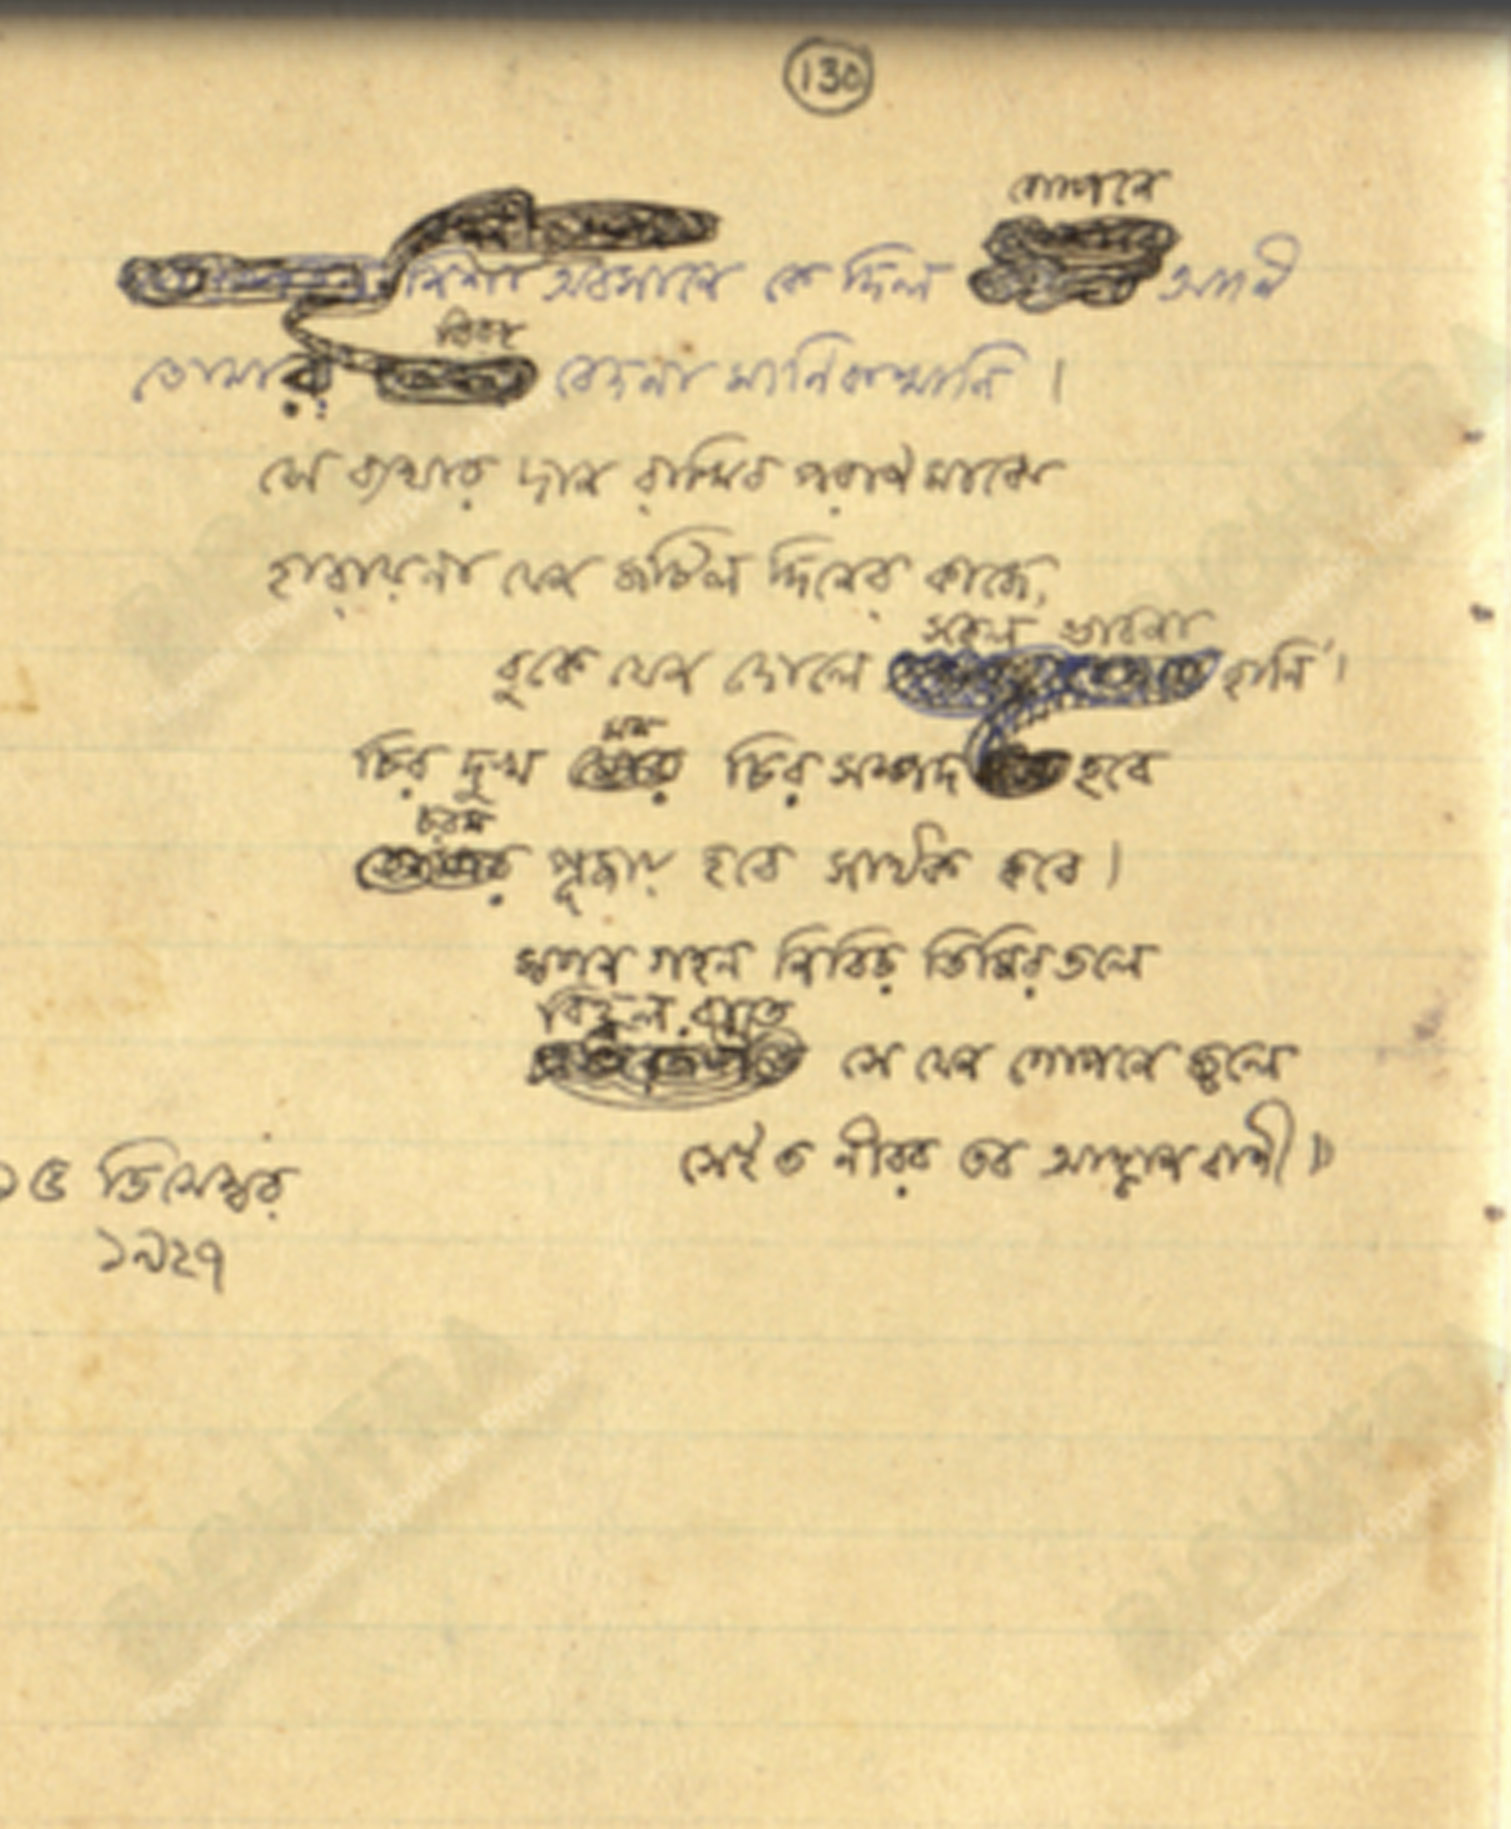 130
গোপনে
নিশা অবসানে কে দিল আনি
তোমার বিরহ বেদনা মানিকখানি।
সে ব্যথার দান রাখিব পরাণ মাঝে
হারায়না যেন জটিল দিনের কাজে,
সকল ভাবনা
বুকে যেন দোলে হানি'।
মম
চির দুখ চির সম্পদ হবে
চরম
পূজায় হবে সার্থক কবে।
স্বপন গহন নিবিড় তিমির তলে
বিহ্বল রাতে
সে যেন গোপনে জ্বলে
সেই ত নীরব তব আহ্বান বাণী॥
১৫ ডিসেম্বর
১৯২৭